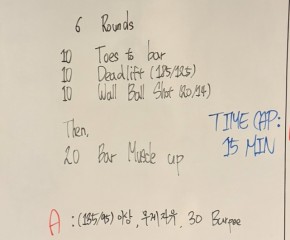 6 Rounds
10 Toes to bar
10 Deadlift (185/125)
10 Wall Ball Shot (20/14)
Then,
20 Bar Muscle up
TIME CAP:
15 MIN
A : (135/95) 이상, 무게자유, 30 Burpee